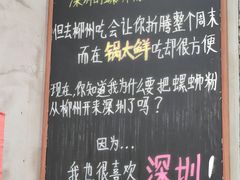 深圳的螺蛳粉
但去柳州吃会让你折腾整个周末
而在锅大鲜吃却很方便
现在,你知道我为什么要把螺蛳粉
从柳州开来深圳了吗?
因为...
我也很喜欢深圳!